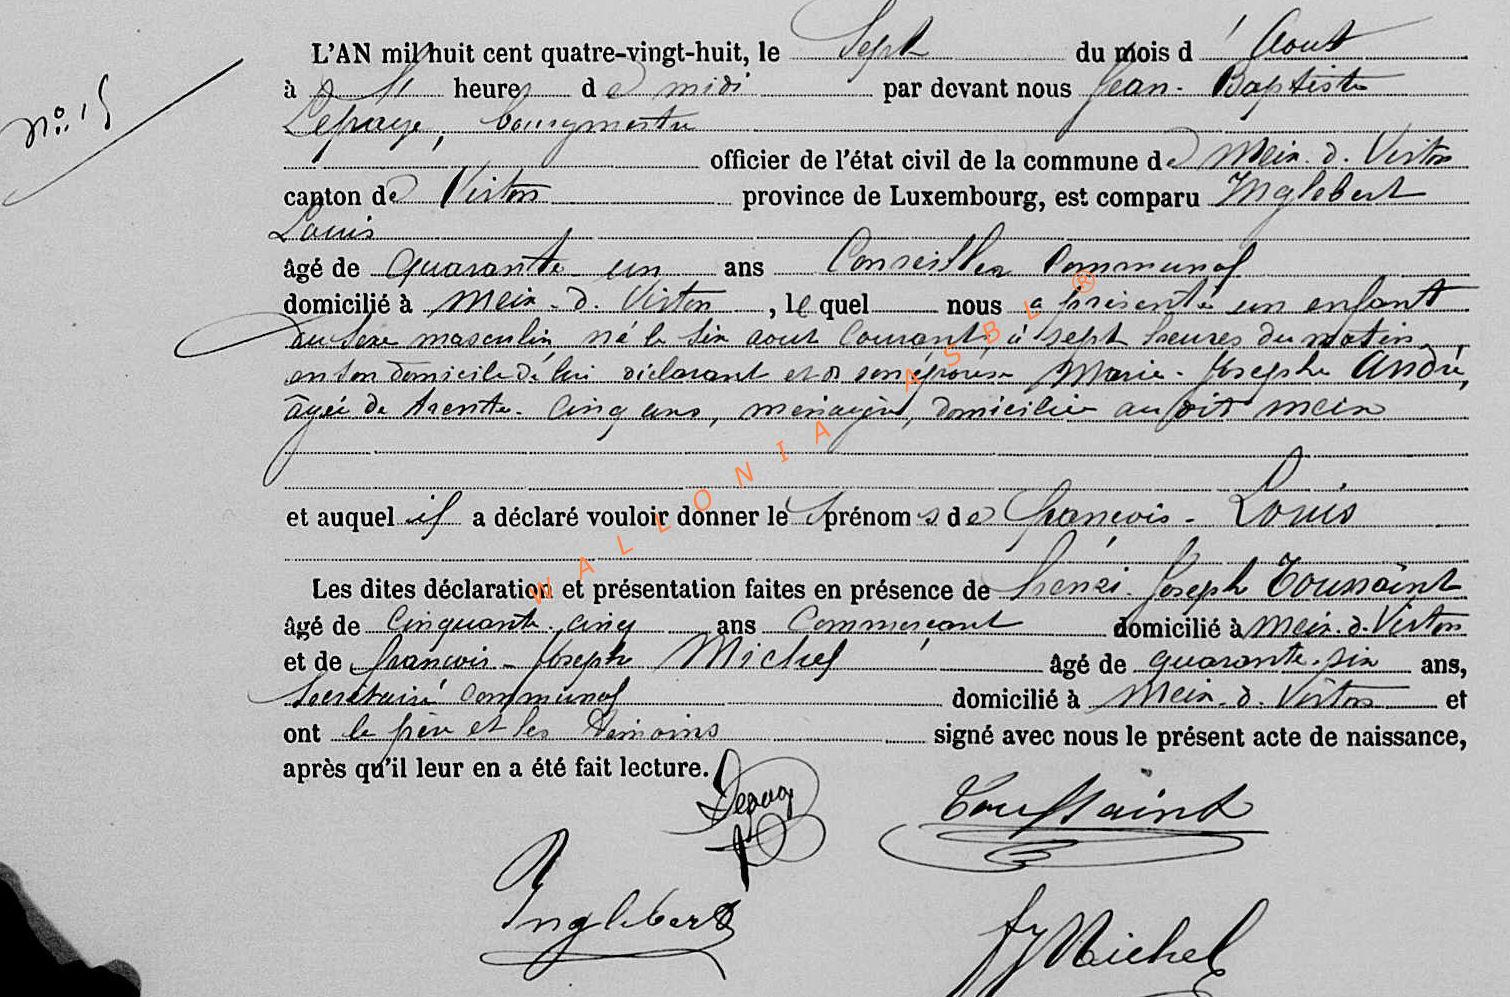 N° 15
L'AN mil huit cent quatre-vingt-huit, le Sept du mois d'Aout
à heure de midi par devant nous Jean-Baptiste
Lepage, bourgmestre
officier de l'état civil de la commune de Meix-d-Virton
canton de Virton province de Luxembourg, est comparu Inglebert
Louis
âgé de quarante-un ans Conseiller Communal
domicilié à Meix-d-Virton, le quel nous a présenté un enfant
du sexe masculin né le six aout courant, à sept heures du matin,
en son domicile de lui déclarant et de son épouse Marie-Josephe André,
âgée de trente-cinq ans, ménagère, domiciliée au dit Meix
et auquel il a déclaré vouloir donner les prénoms de François-Louis
Les dites déclaration et présentation faites en présence de Henri-Joseph Toussaint
âgé de Cinquante-cinq ans Commerçant domicilié à Meix-d-Virton
et de François-Joseph Michel âgé de quarante-six ans,
Secrétaire communal domicilié à Meix-d-Virton et
ont le père et les témoins signé avec nous le présent acte de naissance,
après qu'il leur en a été fait lecture.
Lepage
Toussaint
Inglebert
fJ Michel
WALLONIA ASBL ®